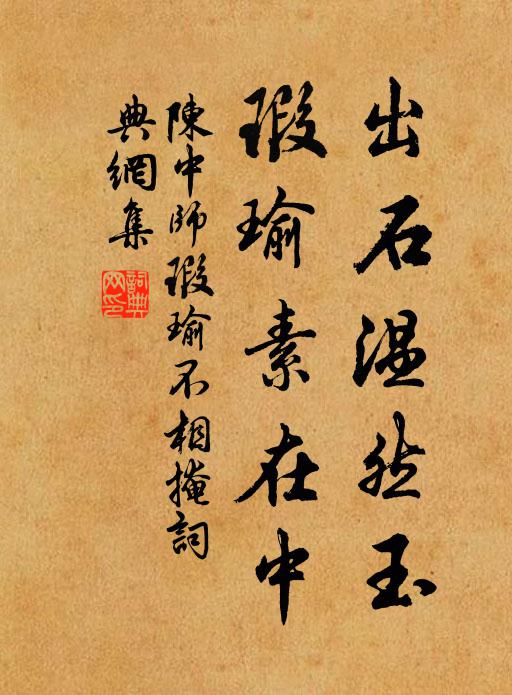 出石温然玉
瑕瑜素在中
陳中師瑕瑜不相掩詞
典網集
詞典
网印